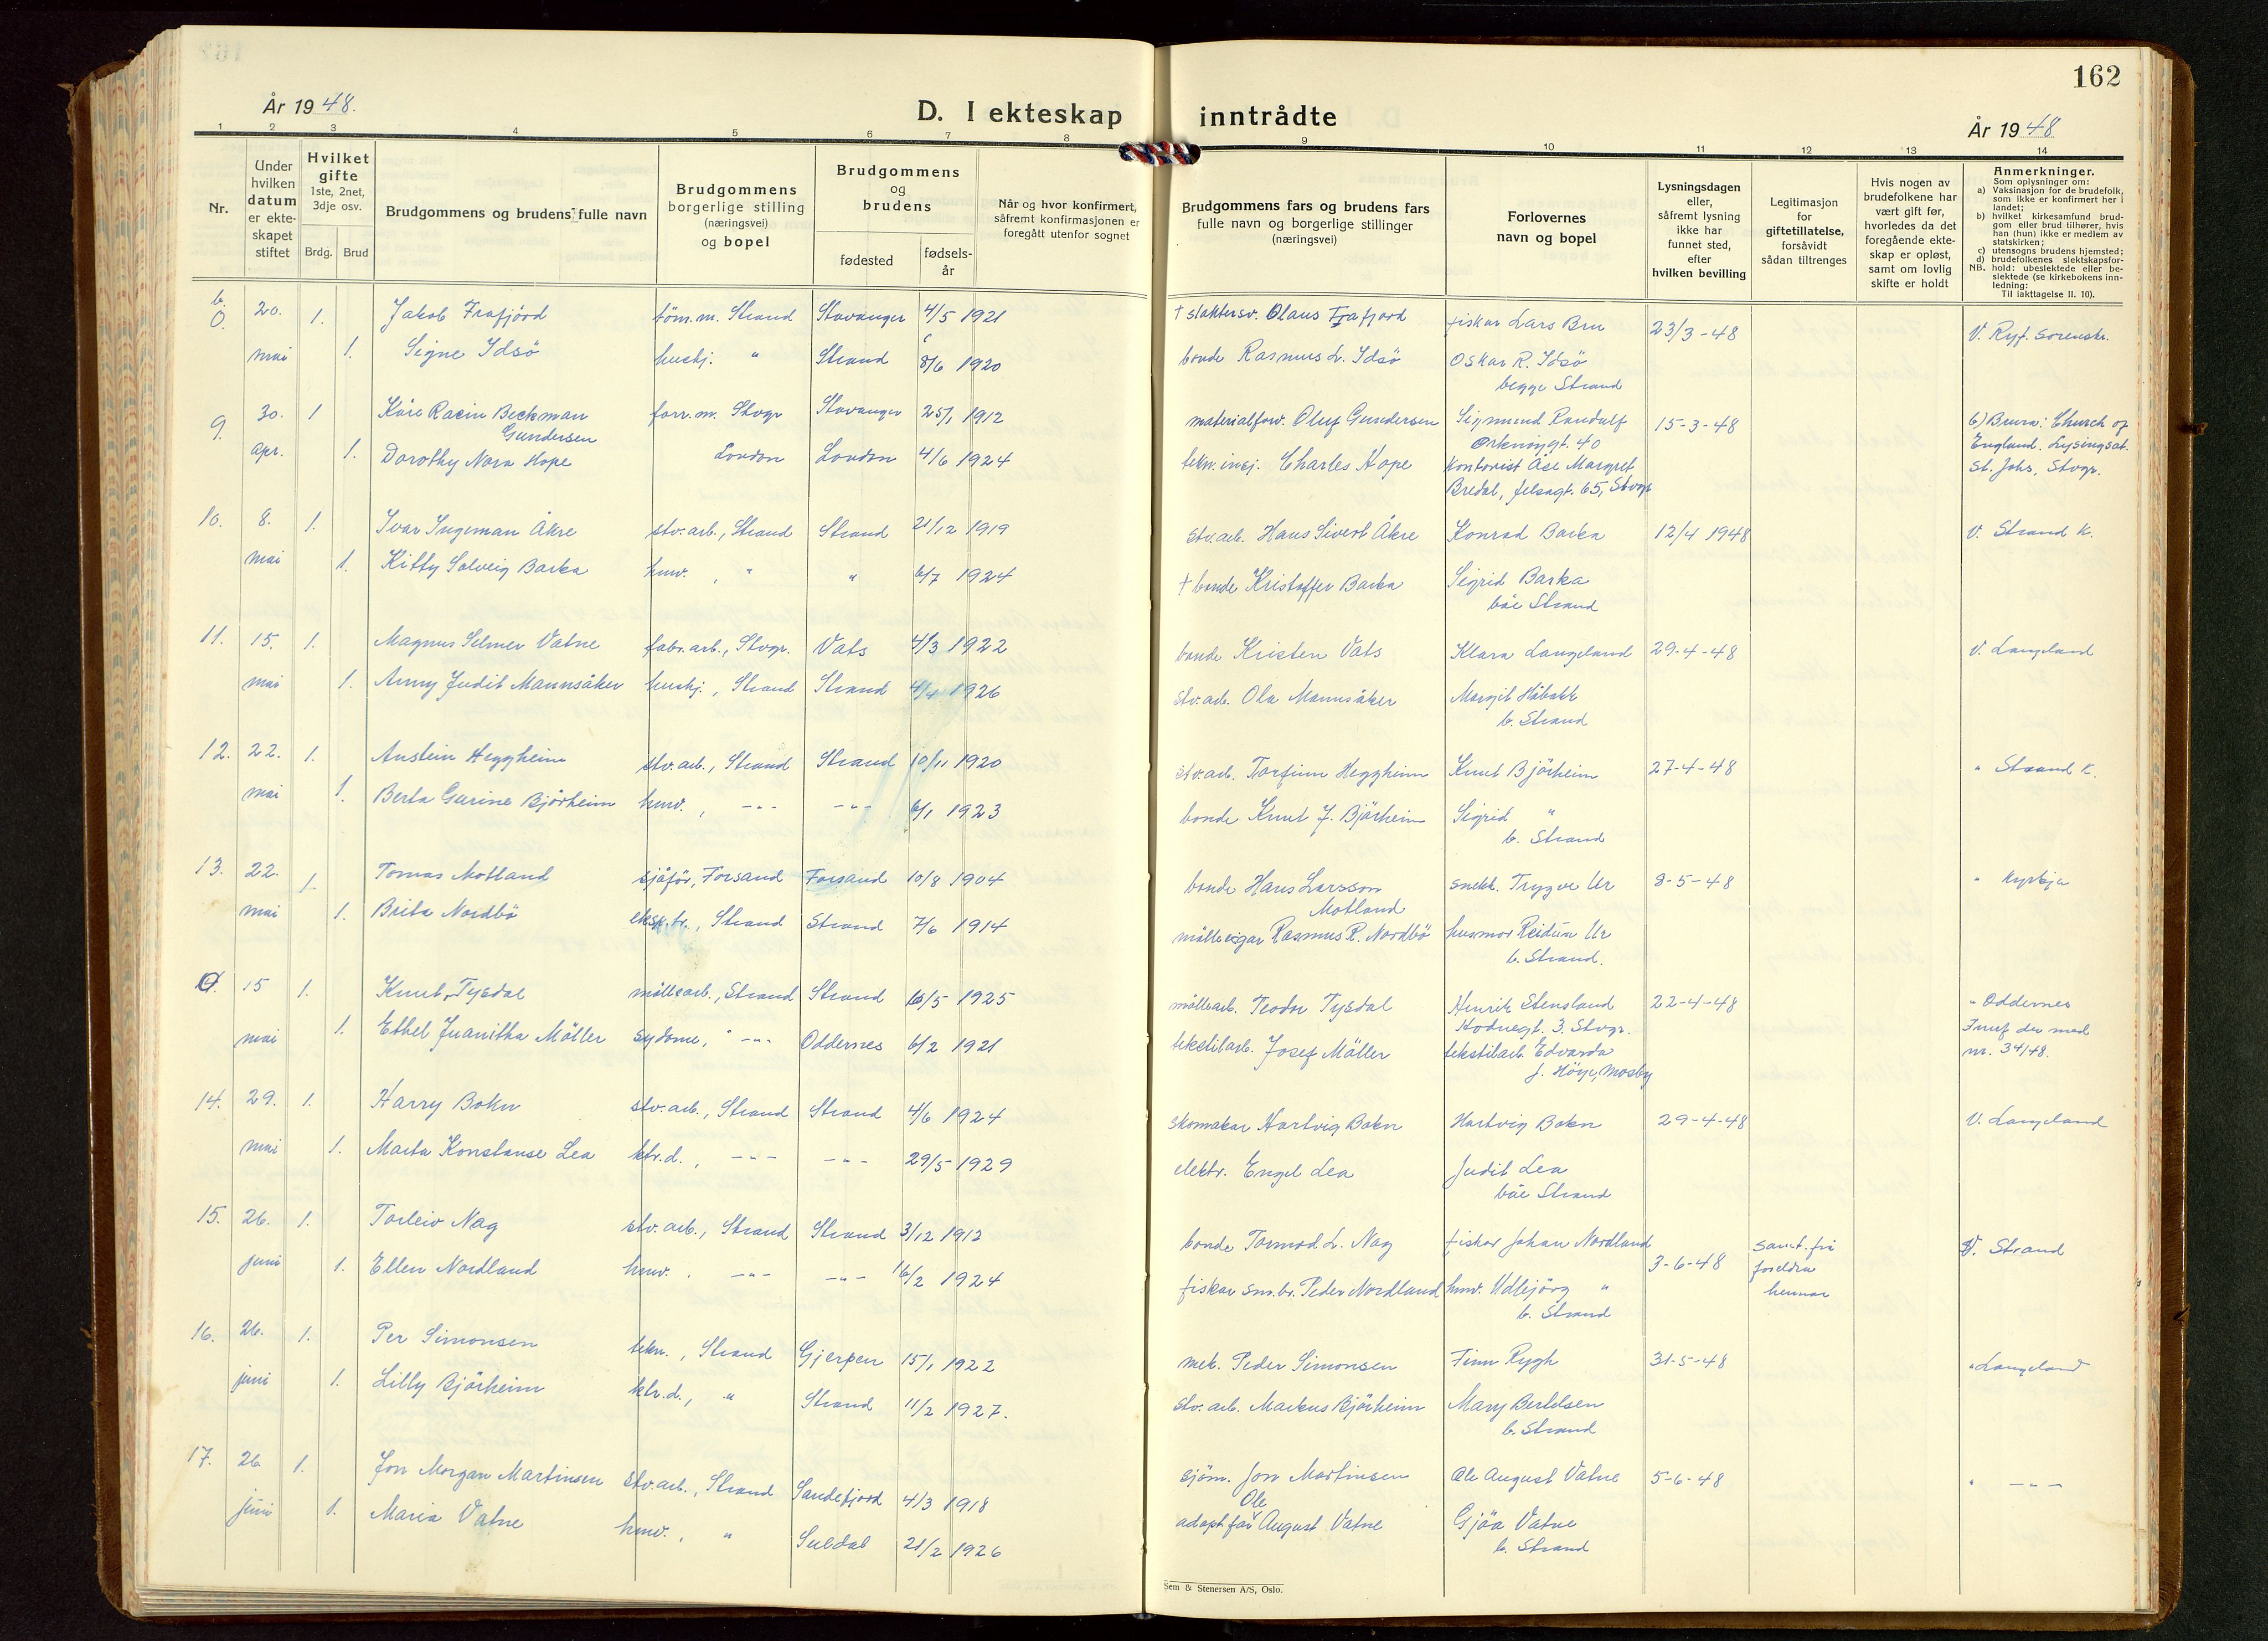 162
År 1948.
D. I ekteskap inntrådte
År 1948
1 2 3 4 5 6 7 8 9 10 11 12 13 14
Nr.
Under hvilken datum er ekteskapet stiftet
Hvilket gifte 1ste, 2net, 3dje osv.
Brdg. Brud
Brudgommens og brudens fulle navn
Brudgommens borgerlige stilling (næringsvei) og bopel
Brudgommens og brudens
fødested
fødsels-år
Når og hvor konfirmert, såfremt konfirmasjonen er foregått utenfor sognet
Brudgommens fars og brudens fars fulle navn og borgerlige stillinger (næringsvei)
Forlovernes navn og bopel
Lysningsdagen eller, såfremt lysning ikke har funnet sted, efter hvilken bevilling
Legitimasjon for giftetillatelse, forsåvidt sådan tiltrenges
Hvis nogen av brudefolkene har vært gift før, hvorledes da det foregående ekteskap er opløst, samt om lovlig skifte er holdt
Anmerkninger.
Som oplysninger om:
a) Vaksinasjon for de brudefolk, som ikke er konfirmert her i landet;
b) hvilket kirkesamfund brudgom eller brud tilhører, hvis han (hun) ikke er medlem av statskirken;
c) utensogns brudens hjemsted;
d) brudefolkenes slektskapsforhold: ubeslektede eller beslektede (se kirkebokens innledning:
NB.
Til iakttagelse II. 10).
20. 1. Jakob Frafjord töm.m. Strand Stavanger 4/5 1921 † slaktersv. Olaus Frafjord fiskar Lars Bru 23/3-48 V. Ryf. Sorenskr.
mai 1. Signe Idsö hushj. " Strand 8/6 1920 bonde Rasmus L. Idsö Oskar R. Idsö
begge Strand
9. 30. 1 Kåre Racin Beckman forr.m. Stvgr Stavanger 25/1 1912 materialforv. Oluf Gundersen Sigmund Randulf 15-3-48 b) Brura: Church of
Gundersen Orknöygt. 40 England. Lysingsat.
apr. 1. Dorothy Nora Hope London London 4/6 1924 tekn. insj. Charles Hope kontorist Åse Margret St. Johs, Stvgr.
Bredal, 65, Stvgr
10. 8. 1. Ivar Ingeman Åkre stv.arb., Strand Strand 21/12 1919 stv.arb. Hans Sivert Åkre Konrad Barka 12/4 1948 V. Strand K.
mai 1. Kitty Solveig Barka hmv. , " " 6/7 1924 † bonde Kristoffer Barka Sigrid Barka
båe Strand
11. 15. 1. Magnus Selmer Vatne fabr.arb., Stvgr. Vats 4/3 1922 bonde Kristen Vats Klara Langeland 29-4-48 V. Langeland
mai 1. Anny Judit Mannsåker hushj., Strand Strand 4/4 1926 stv.arb. Ola Mannsåker Margit Håbakk
b. Strand
12. 22. 1. Austein Heggheim stv.arb., Strand Strand 10/11 1920 stv.arb. Torfinn Heggheim Knut Bjørheim 27-4-48 " Strand K.
mai 1. Berta Gurine Bjørheim hmv. , -"- -"- 6/1 1923 bonde Knut J. Bjørheim Sigrid "
b. Strand
13. 22. 1. Tomas Motland sjåför, Forsand Forsand 10/8 1904 bonde Hans Larsson snekk. Trygve Ur 8-5-48 " Kyrkja
Motland
mai 1. Brita Nordbö eksp.tr., Strand Strand 7/6 1914 mölleeigar Rasmus R. Nordbö husmor Reidun Ur
b. Strand.
15 1. Knut Tysdal möllearb., Strand Strand 16/5 1925 möllearb. Teodor Tysdal Henrik Stensland 22-4-48 " Oddernes
Hodnegt. 3. Stvgr. Innf. der med
mai 1. Ethel Juanitha Möller sydame, " -"- Oddernes 6/2 1921 tekstilarb. Josef Möller tekstilarb. Edvarda nr. 34/48.
J. Höye, Mosby
14. 29. 1. Harry Bokn stv.arb., Strand Strand 4/6 1924 skomakar Hartvig Bokn Hartvig Bokn 29-4-48 V. Langeland
mai 1. Marta Konstanse Lea ktr.d. , -"- -"- 29/5 1929 elektr. Engel Lea Judit Lea
båe Strand
15. 26. 1. Torleiv Nag stv.arb., Strand Strand 3/12 1912 bonde Tormod L. Nag fiskar Johan Nordland 3-6-48 samt. frå V. Strand
foreldra
juni 1. Ellen Nordland hmv. , -"- -"- 16/2 1924 fiskar sm.br. Peder Nordland hmv. Udbjörg " hennar
b. Strand
16. 26. 1. Per Simonsen tekn. , Strand Gjerpen 15/1 1922 mek. Peder Simonsen Finn Rygh 31-5-48 " Langeland
juni 1. Lilly Bjørheim ktr.d., " Strand 11/2 1927. stv.arb. Markus Bjørheim Mary Bertelsen
b. Strand
17. 26 1. Jon Morgan Martinsen stv.arb., Strand Sandefjord 4/3 1918 sjöm. Jon Martinsen Ole August Vatne 5-6-48 " -"-
juni 1. Maria Vatne hmv. , " Suldal 21/2 1926 adopt.far Ole August Vatne Gjöa Vatne
b. Strand
Sem & Stenersen A/S, Oslo.